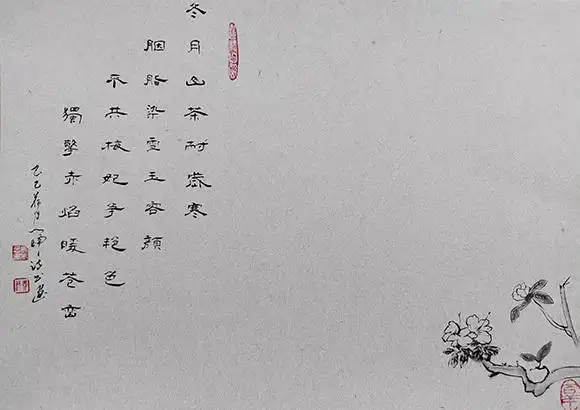 冬月山茶耐歲寒
胭脂染雪玉容顏
不共梅妃争艳色
獨擎赤焰暖苍峦
乙巳